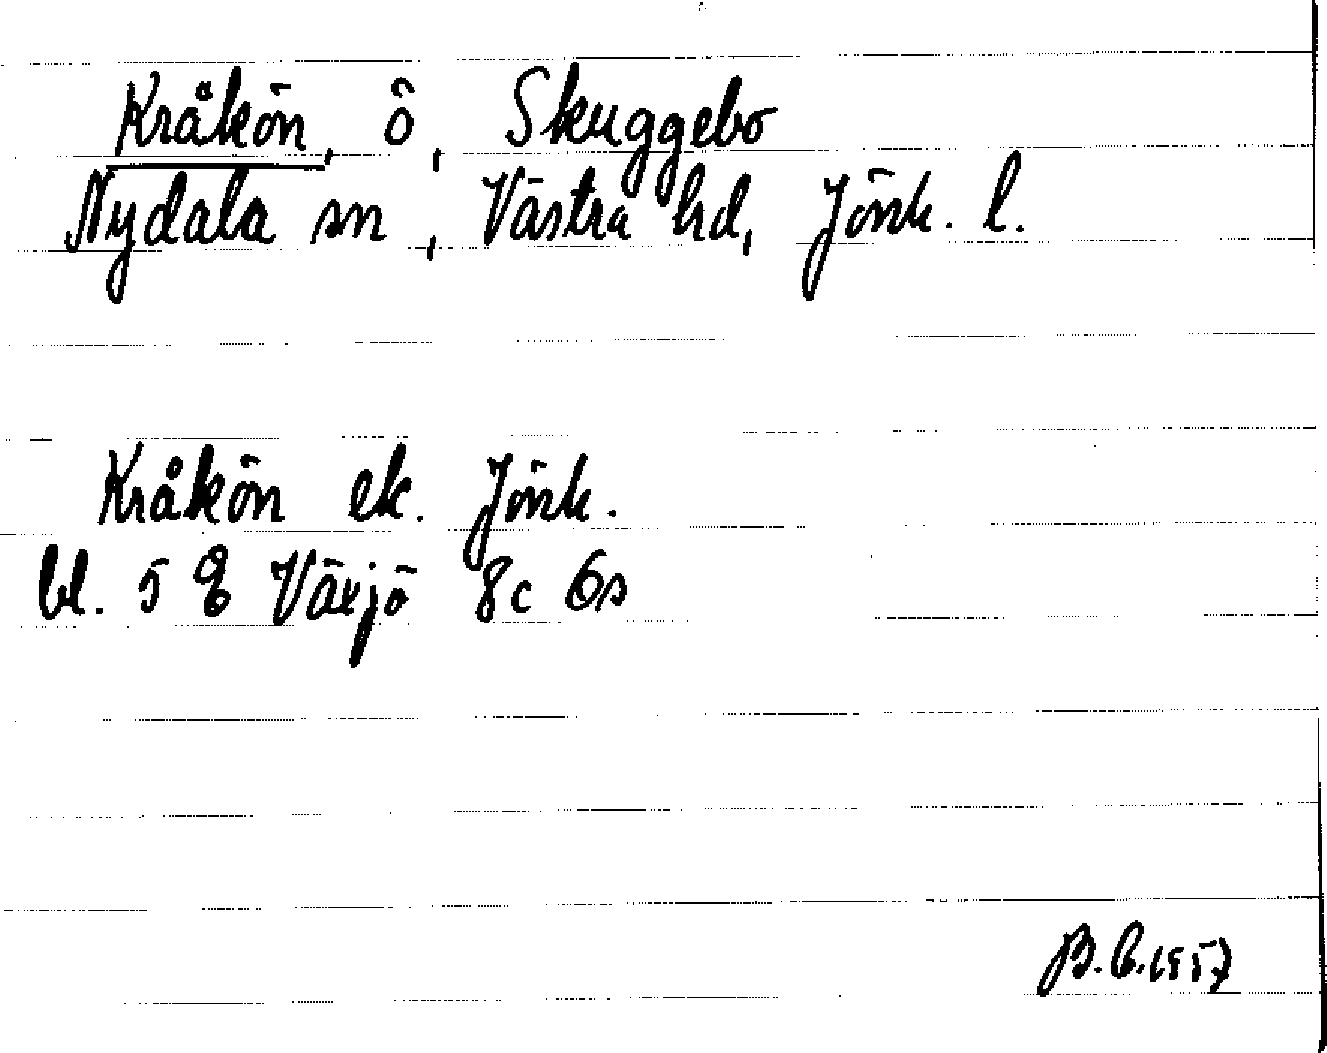 Kråkön, ö, Skuggebo
Nydala sn, Västra hd, Jönk. l.
Kråkön ek. Jönk.
bl. 5 8 Växjö 8c 6s
B.C. 1957